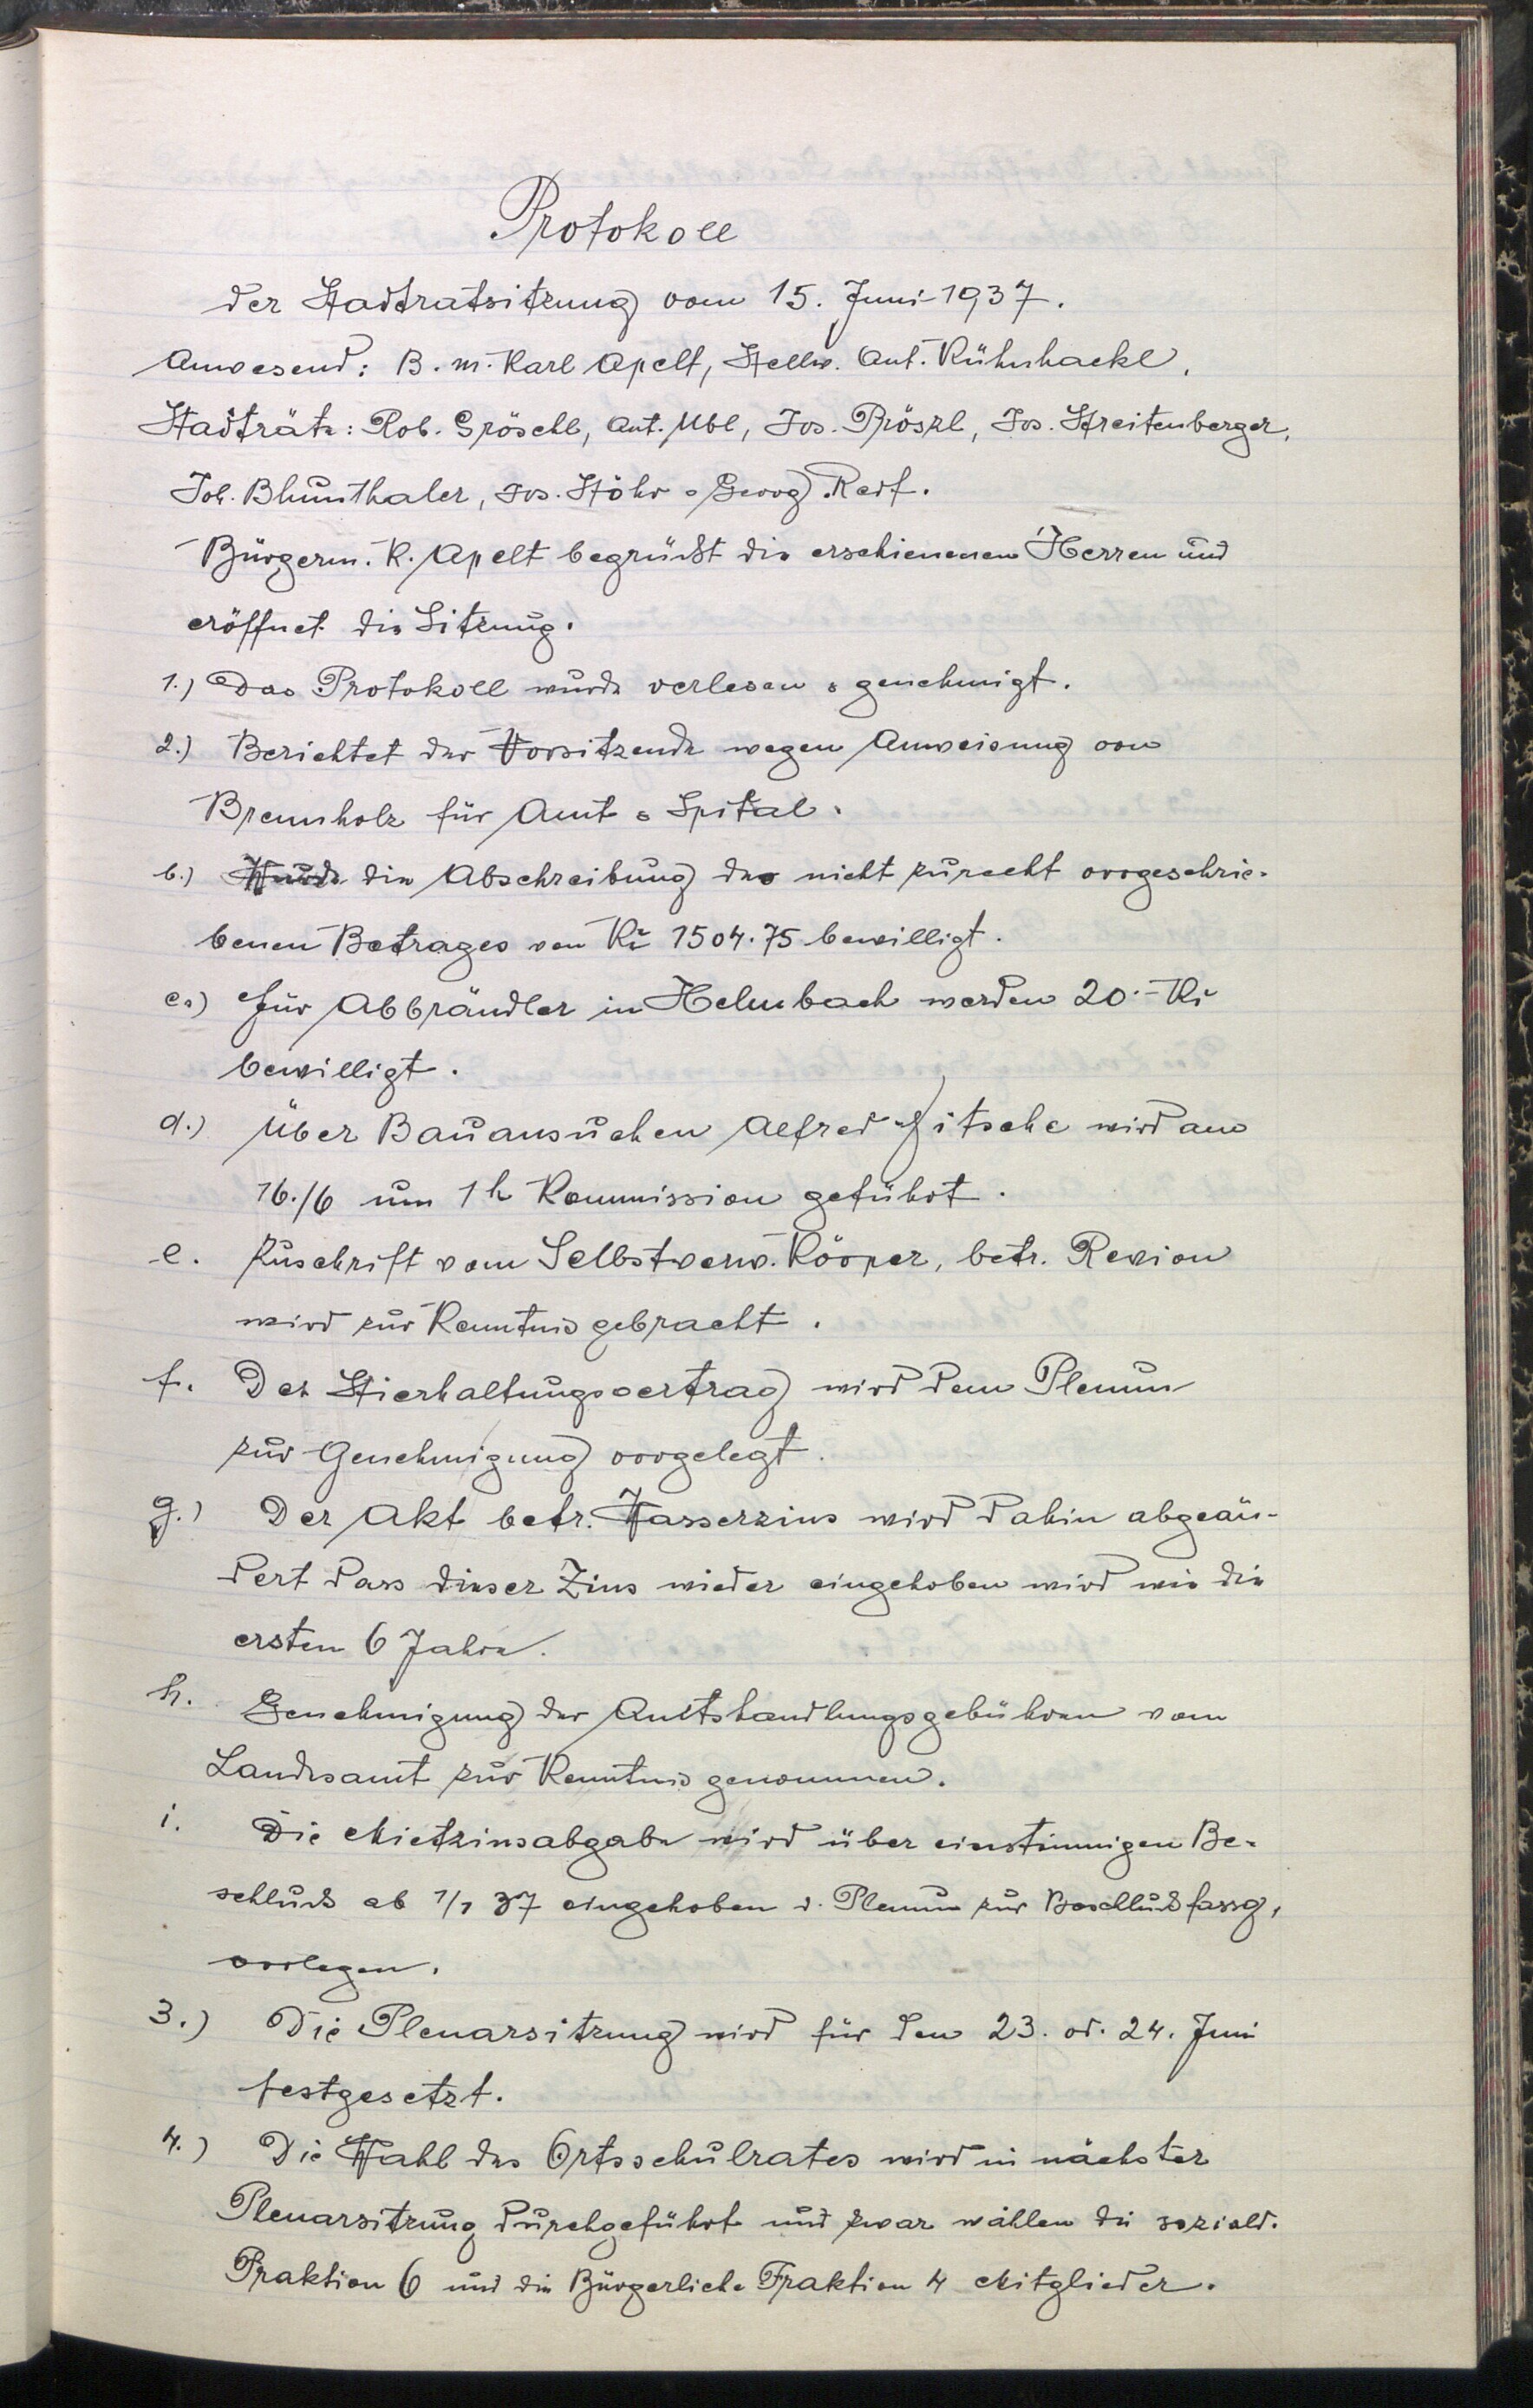 Protokoll
der Stadtratsitzung vom 15. Juni 1937.
Anwesend: B. m. Karl Apelt, Stellv. Ant. Kühnhackl,
Stadträte: Rob. Gröschl, Ant. Ubl, Jos. Pröszl, Jos. Streitenberger,
Joh. Blumthaler, Jos. Stöhr & Georg Reif.
Bürgerm. K. Apelt begrüßt die erschienenen Herren und
eröffnet die Sitzung.
1.) Das Protokoll wurde verlesen & genehmigt.
2.) Berichtet der Vorsitzende wegen Anweisung von
Brennholz für Amt & Spital.
b.) Wurde die Abschreibung des nicht zurecht vorgeschrie-
benen Betrages von Kč 1504.75 bewilligt.
c.) Für Abbrändler in Helmbach werden 20.- Kč
bewilligt.
d.) Über Bauansuchen Alfred Fitsche wird am
16./6 um 1 h Kommission geführt.
e. Zuschrift vom Selbstverw. Körper, betr. Revion
wird zur Kenntnis gebracht.
f. Der Stierhaltungsvertrag wird dem Plenum
zur Genehmigung vorgelegt.
g.) Der Akt betr. Wasserzins wird dahin abgeän-
dert dass dieser Zins wieder eingehoben wird wie die
ersten 6 Jahre.
h. Genehmigung der Amtshandlungsgebühren vom
Landesamt zur Kenntnis genommen.
i. Die Mietzinsabgabe wird über einstimmigen Be-
schluß ab 1/1 37 eingehoben d. Plenum zur Beschlußfassg.
vorlegen.
3.) Die Plenarsitzung wird für den 23. od. 24. Juni
festgesetzt.
4.) Die Wahl des Ortsschulrates wird in nächster
Plenarsitzung durchgeführt und zwar wählen die soziald.
Fraktion 6 und die Bürgerliche Fraktion 4 Mitglieder.